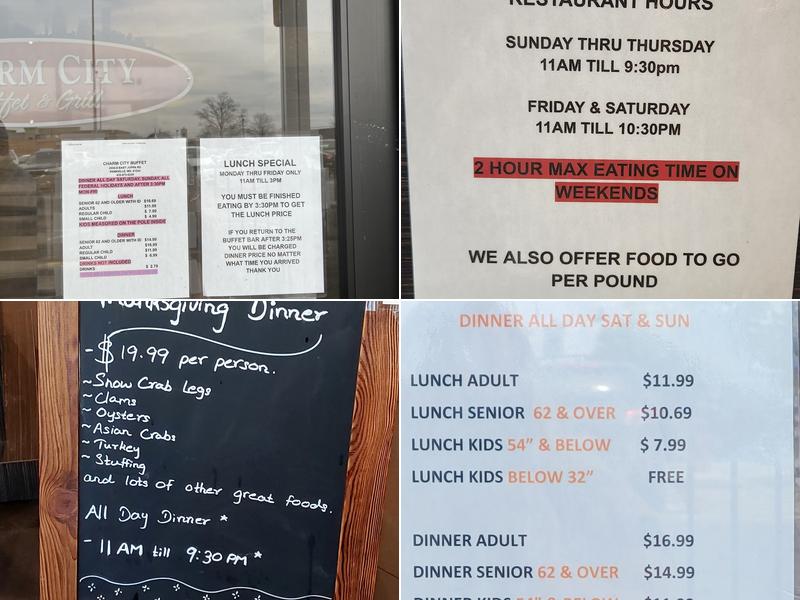 RM CITY
ffet & Grill
CHARM CITY BUFFET
DINNER ALL DAY SATURDAY, SUNDAY, ALL
FEDERAL HOLIDAYS AND AFTER 3:30PM
MON-FRI
LUNCH
SENIOR 62 AND OLDER WITH ID $10.69
ADULTS $11.99
REGULAR CHILD $ 7.99
SMALL CHILD $ 4.99
KIDS MEASURED ON THE POLE INSIDE
DINNER
SENIOR 62 AND OLDER WITH ID $14.99
ADULT $16.99
REGULAR CHILD $11.99
SMALL CHILD $ 6.99
DRINKS NOT INCLUDED
DRINKS $ 2.79
LUNCH SPECIAL
MONDAY THRU FRIDAY ONLY
11AM TILL 3PM
YOU MUST BE FINISHED
EATING BY 3:30PM TO GET
THE LUNCH PRICE
IF YOU RETURN TO THE
BUFFET BAR AFTER 3:25PM
YOU WILL BE CHARGED
DINNER PRICE NO MATTER
WHAT TIME YOU ARRIVED
THANK YOU
RESTAURANT HOURS
SUNDAY THRU THURSDAY
11AM TILL 9:30pm
FRIDAY & SATURDAY
11AM TILL 10:30PM
2 HOUR MAX EATING TIME ON
WEEKENDS
WE ALSO OFFER FOOD TO GO
PER POUND
Thanksgiving Dinner
- $19.99 per person.
~ Snow Crab Legs
~ Clams
~ Oysters
~ Asian Crabs
~ Turkey
~ Stuffing
and lots of other great foods.
All Day Dinner *
- 11 AM till 9:30 PM *
DINNER ALL DAY SAT & SUN
LUNCH ADULT $11.99
LUNCH SENIOR 62 & OVER $10.69
LUNCH KIDS 54" & BELOW $ 7.99
LUNCH KIDS BELOW 32" FREE
DINNER ADULT $16.99
DINNER SENIOR 62 & OVER $14.99
DINNER KIDS 54" & BELOW $11.99